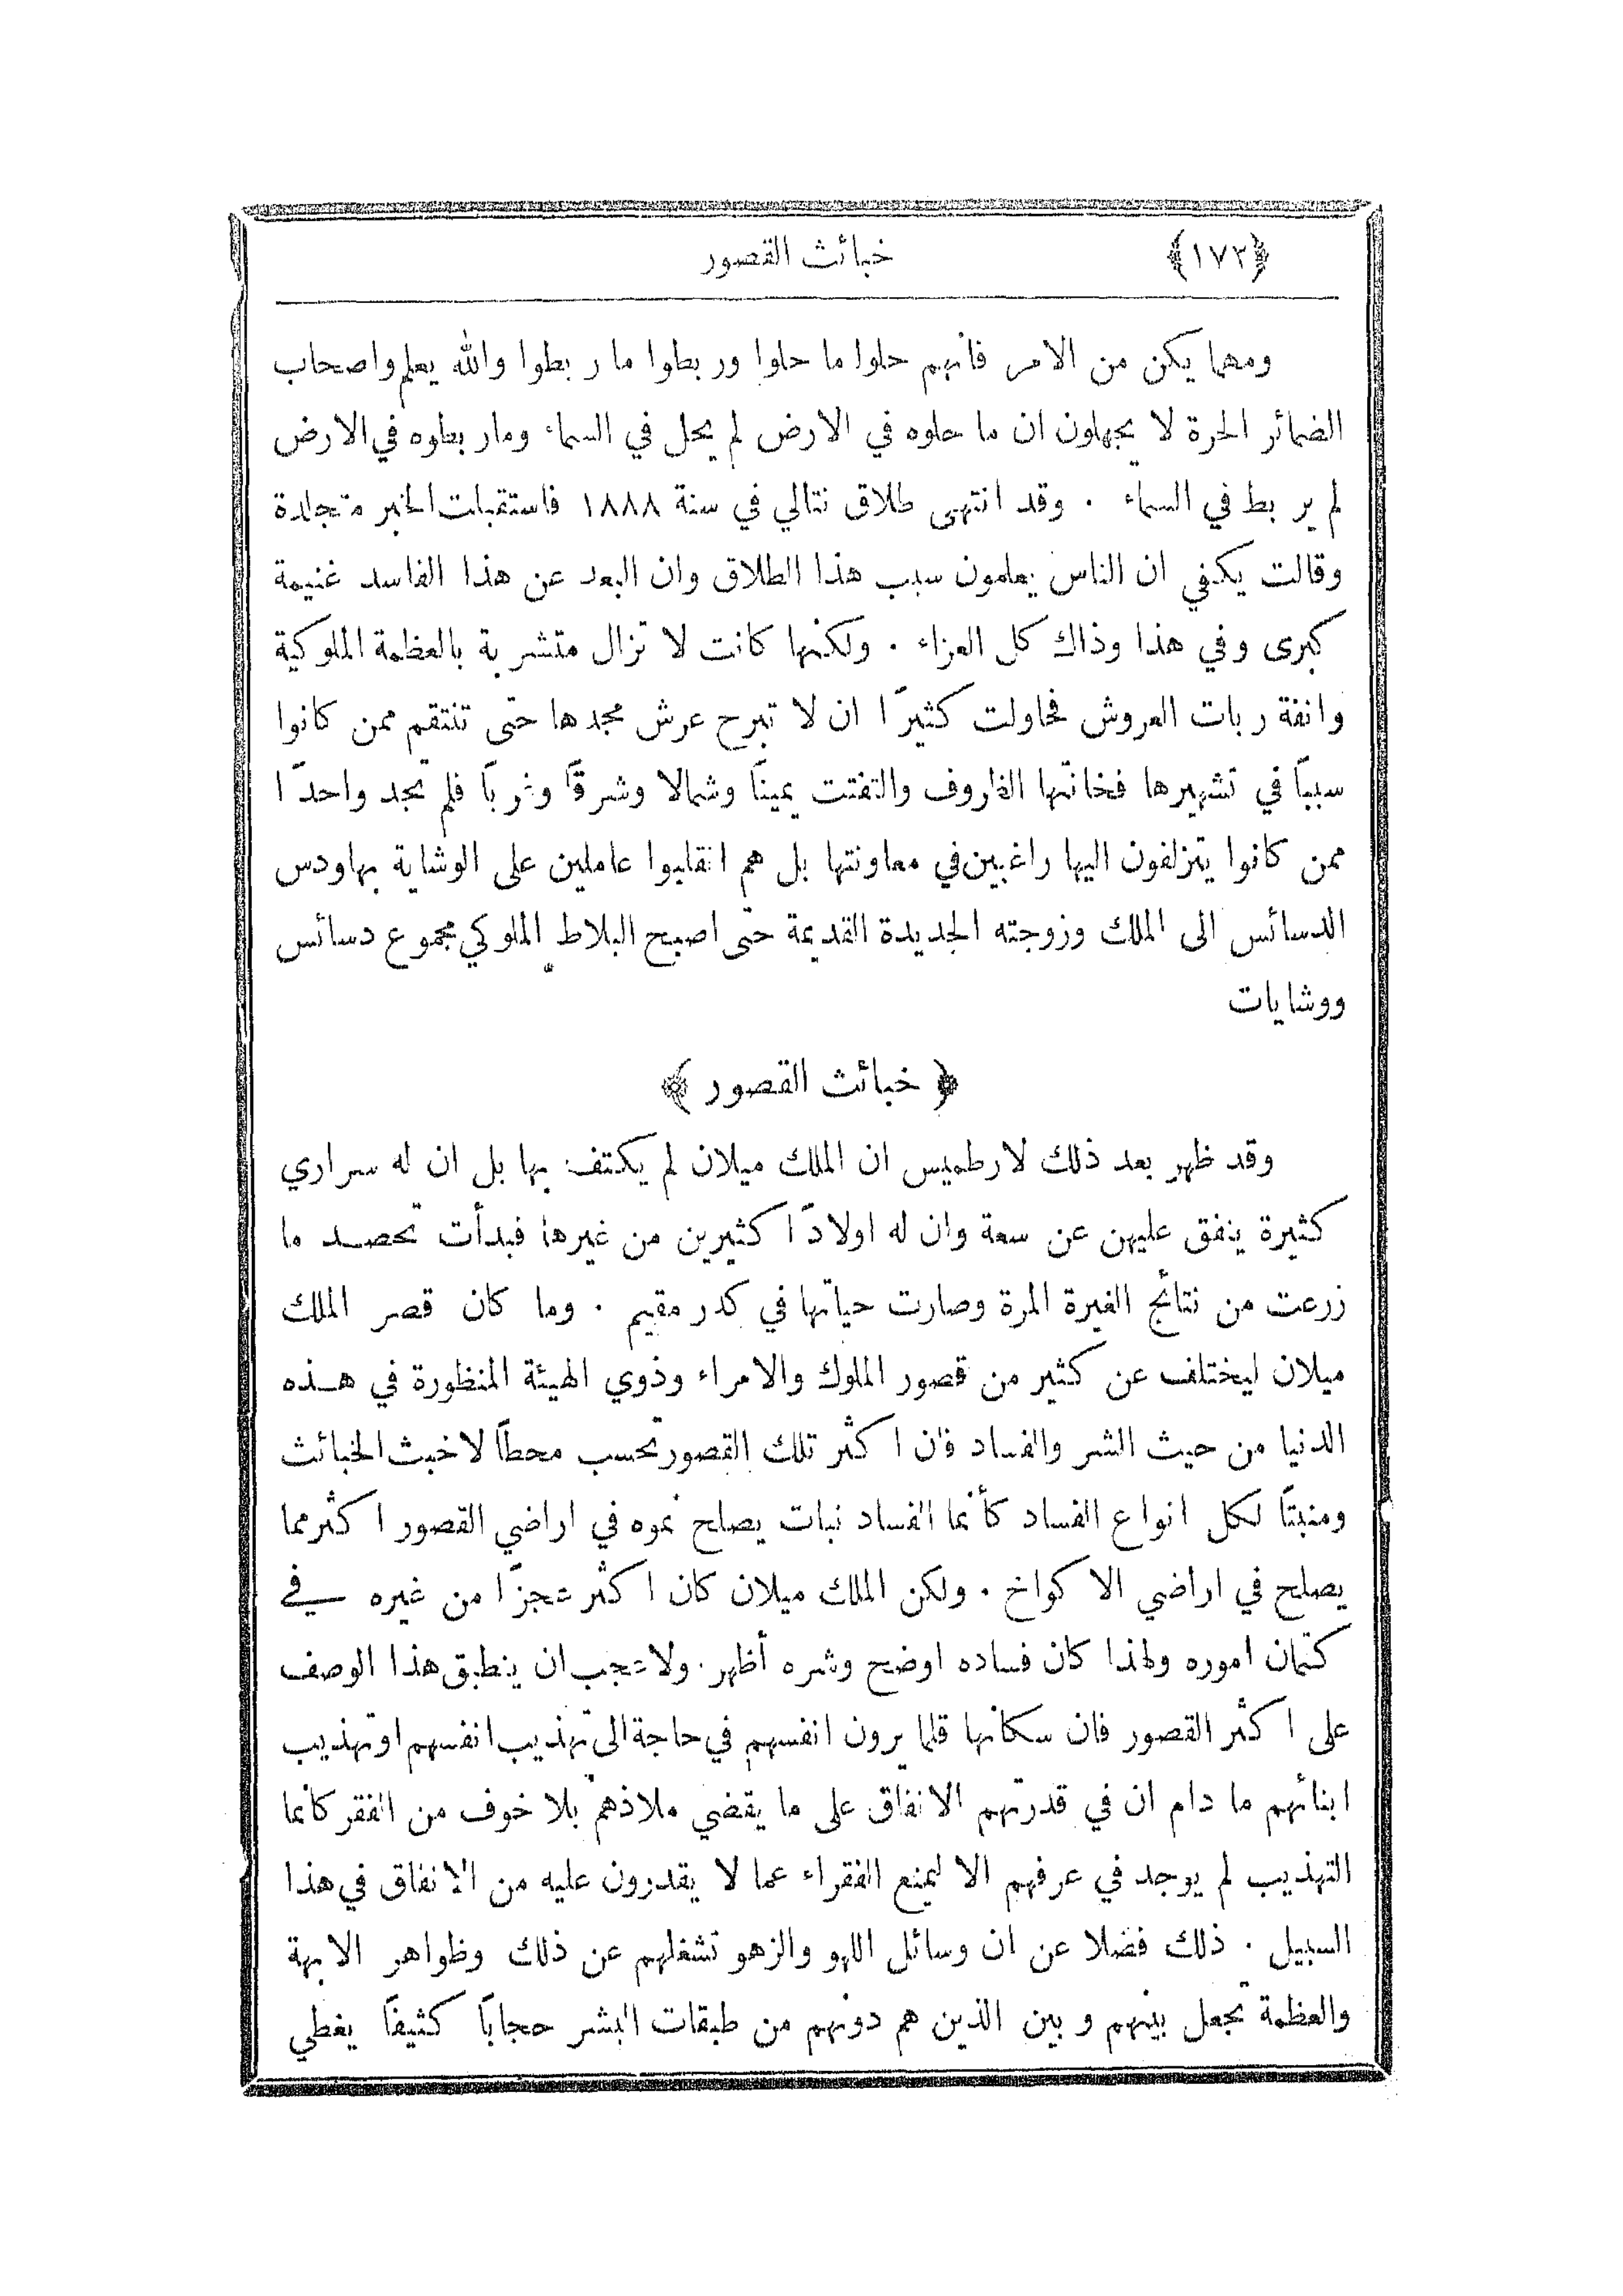 ﴿١٧٢﴾ خبائث القصور
ومهما يكن من الامر فانهم حلوا ما حلوا وربطوا ما ربطوا والله يعلم واصحاب
الضمائر الحرة لا يجهلون ان ما حلوه في الارض لم يحل في السماء وما ربطوه في الارض
لم يربط في السماء . وقد انتهى طلاق نتالي في سنة ١٨٨٨ فاستقبلت الخبر متجلدة
وقالت يكفي ان الناس يعلمون سبب هذا الطلاق وان البعد عن هذا الفاسد غنيمة
كبرى وفي هذا وذاك كل العزاء . ولكنها كانت لا تزال متشربة بالعظمة الملوكية
وانفة ربات العروش فحاولت كثيرًا ان لا تبرح عرش مجدها حتى تنتقم ممن كانوا
سببًا في تشهيرها فخانتها الظروف والتفتت يمينًا وشمالا وشرقًا وغربًا فلم تجد واحدًا
ممن كانوا يتزلفون اليها راغبين في معاونتها بل هم انقلبوا عاملين على الوشاية بها ودس
الدسائس الى الملك وزوجته الجديدة القديمة حتى اصبح البلاط الملوكي مجموع دسائس
ووشايات
﴿ خبائث القصور ﴾
وقد ظهر بعد ذلك لارطميس ان الملك ميلان لم يكتف بها بل ان له سراري
كثيرة ينفق عليهن عن سعة وان له اولادًا كثيرين من غيرها فبدأت تحصد ما
زرعت من نتائج الغيرة المرة وصارت حياتها في كدر مقيم . وما كان قصر الملك
ميلان ليختلف عن كثير من قصور الملوك والامراء وذوي الهيئة المنظورة في هذه
الدنيا من حيث الشر والفساد فان اكثر تلك القصور تحسب محطًا لاخبث الخبائث
ومنبتًا لكل انواع الفساد كأنما الفساد نبات يصلح نموه في اراضي القصور اكثر مما
يصلح في اراضي الاكواخ . ولكن الملك ميلان كان اكثر عجزًا من غيره في
كتمان اموره ولهذا كان فساده اوضح وشره أظهر . ولا عجب ان ينطبق هذا الوصف
على اكثر القصور فان سكانها قلما يرون انفسهم في حاجة الى تهذيب انفسهم او تهذيب
ابنائهم ما دام ان في قدرتهم الانفاق على ما يقضي ملاذهم بلا خوف من الفقر كانما
التهذيب لم يوجد في عرفهم الا ليمنع الفقراء عما لا يقدرون عليه من الانفاق في هذا
السبيل . ذلك فضلا عن ان وسائل اللهو والزهو تشغلهم عن ذلك وظواهر الابهة
والعظمة تجعل بينهم وبين الذين هم دونهم من طبقات البشر حجابًا كثيفًا يغطي